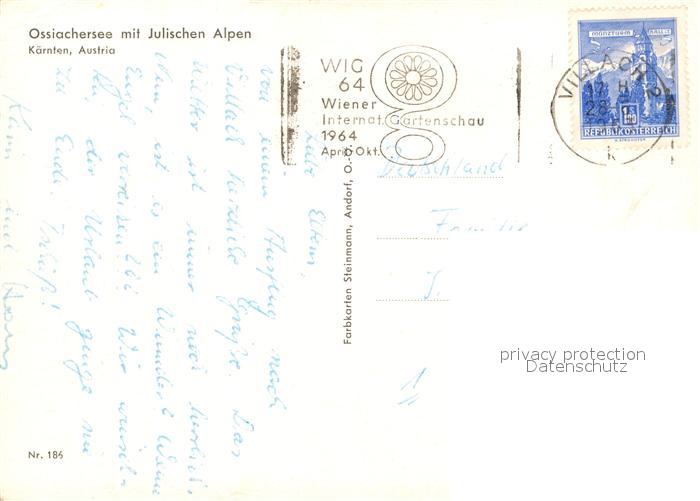 Ossiachersee mit Julischen Alpen
Kärnten, Austria
WIG
64
Wiener
Internat. Gartenschau
1964
April-Okt.
MÜNZTURM HALL I.T.
S 1.50
REPUBLIK ÖSTERREICH
VILLACH 2
Liebe Eltern,
von einem Ausflug nach
Villach herzliche Grüße. Das
Wetter ist immer noch herrlich.
Nun, ist es ein Wunder? Wenn
Engel verreisen!!! Wir wünsch-
ten der Urlaub ginge nie
zu Ende. Tschüß!
und
Farbkarten Steinmann, Andorf, O.-Ö.
Deutschland
Familie
J.
privacy protection
Datenschutz
Nr. 186